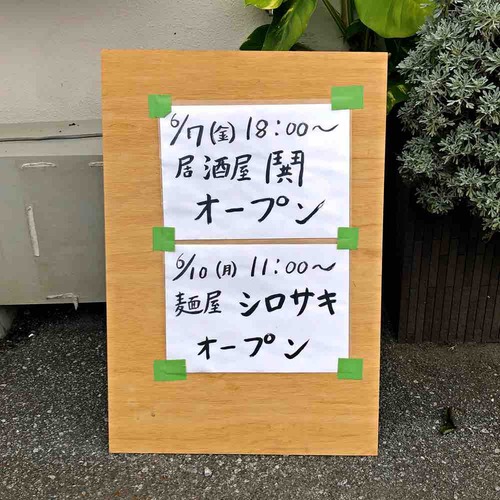 6/7(金) 18:00～
居酒屋 鬨
オープン
6/10(月) 11:00～
麺屋 シロサキ
オープン